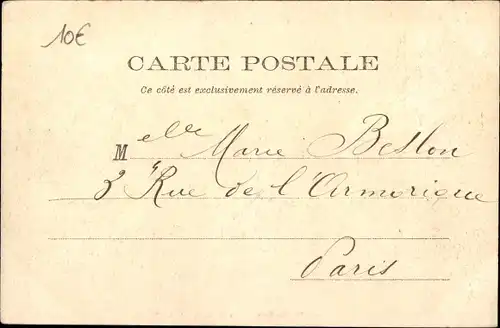 10€
CARTE POSTALE
Ce côté est exclusivement réservé à l'adresse.
Melle Marie Besson
3 Rue de l'Armorique
Paris